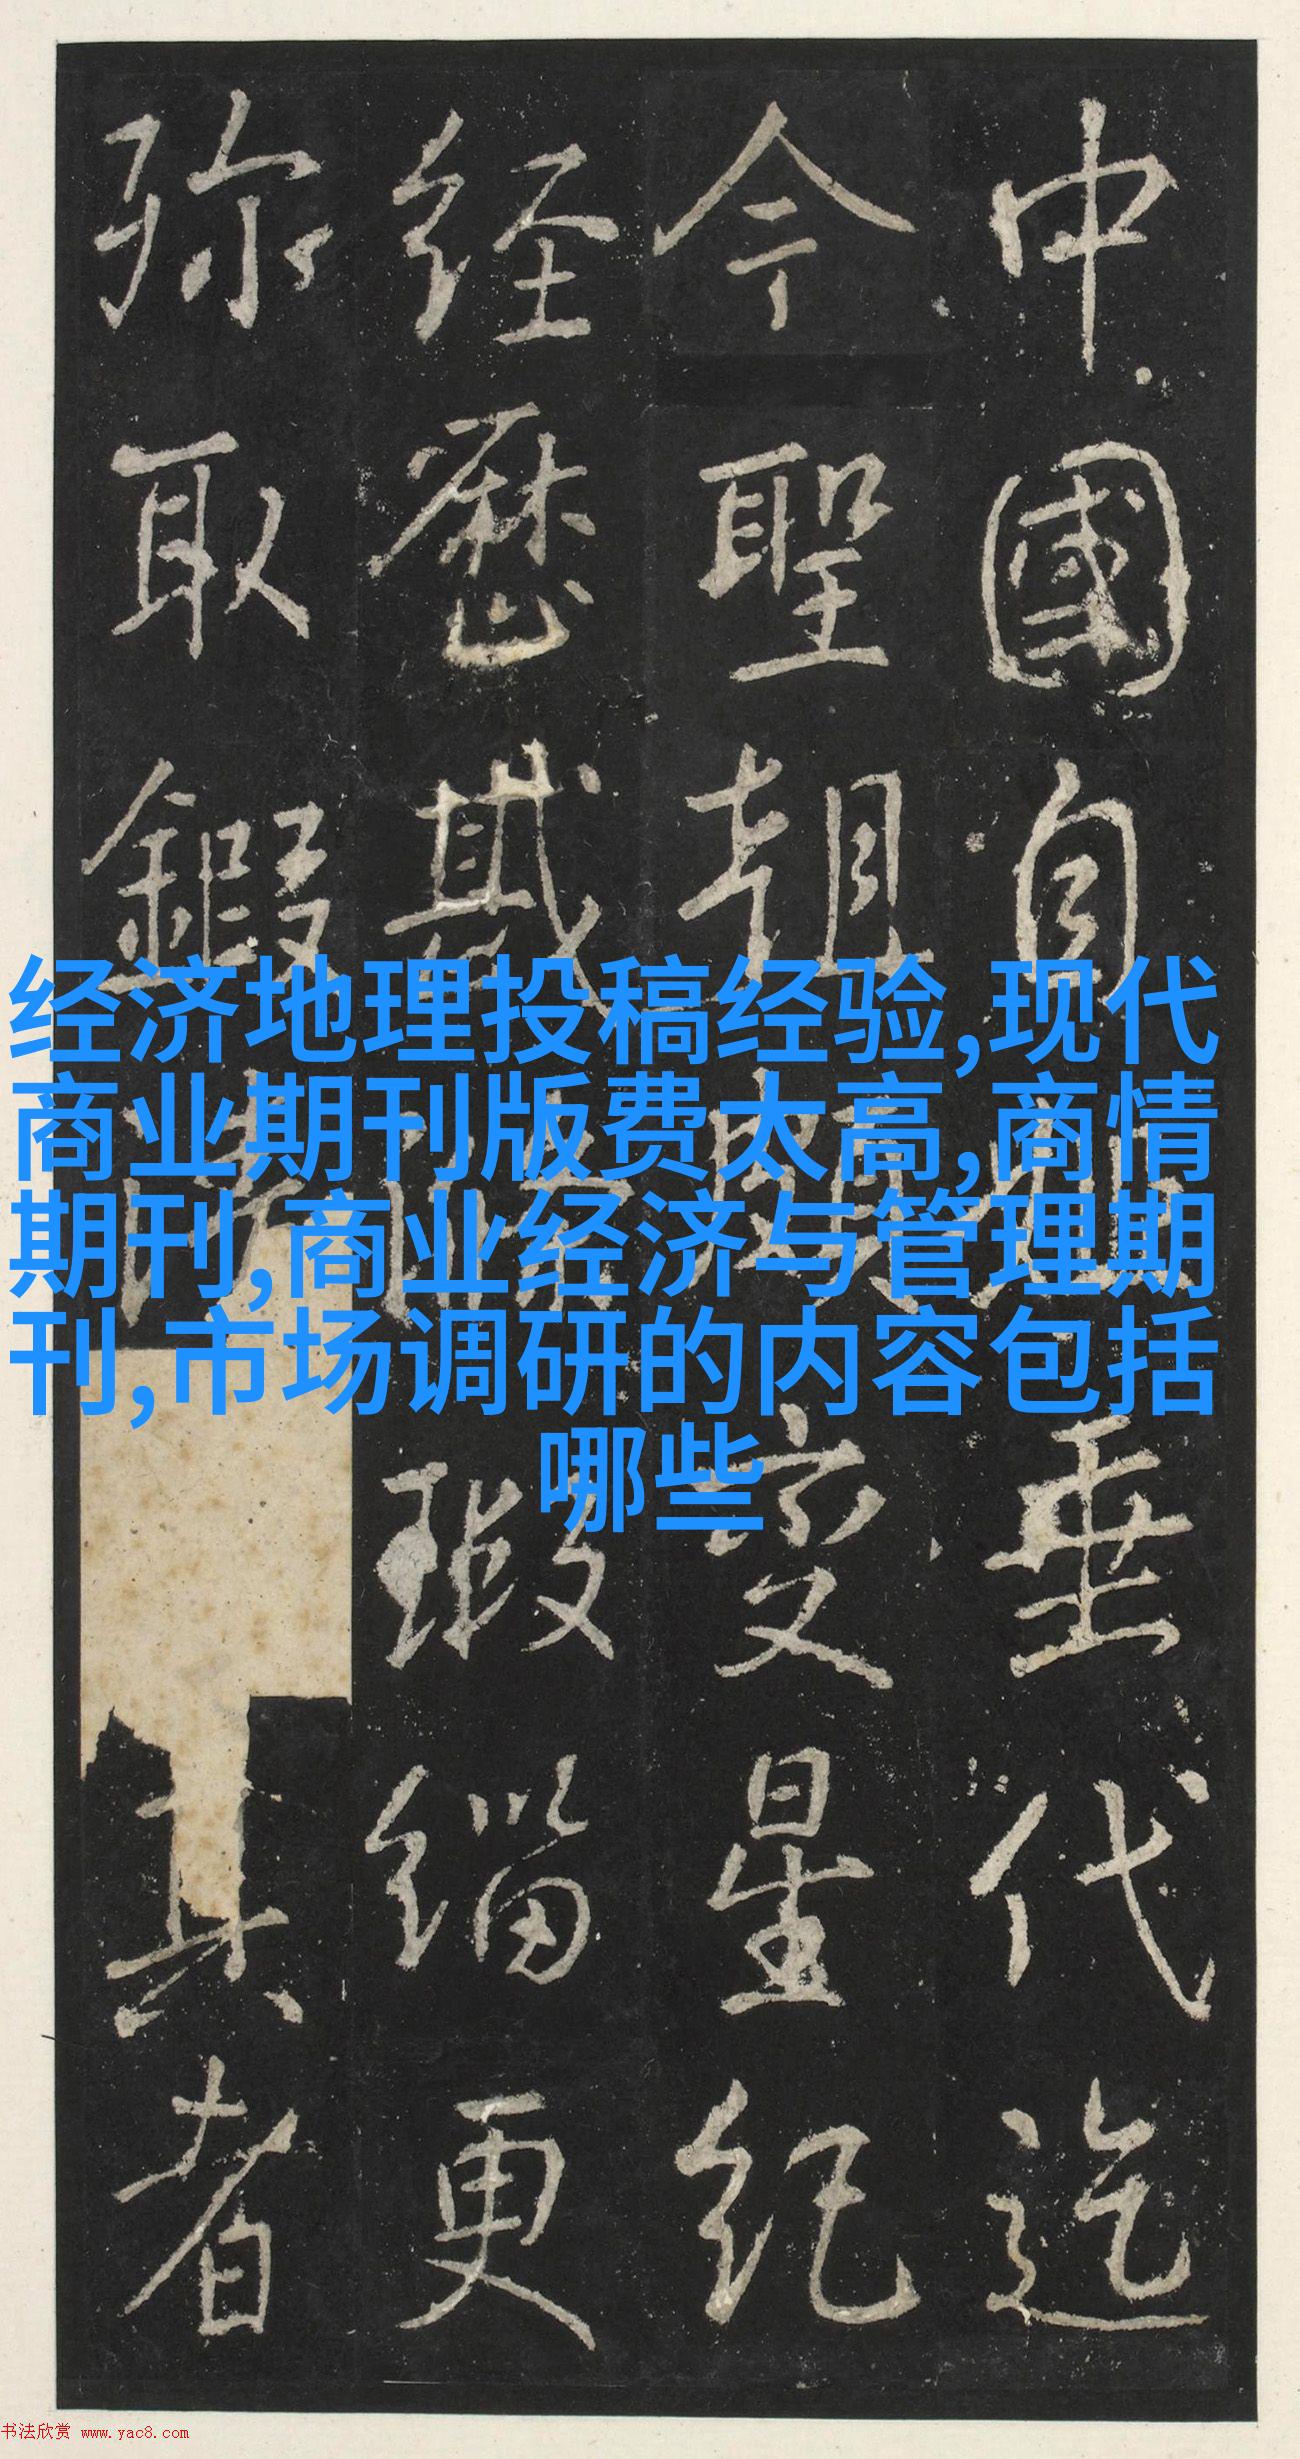 中國自�垂代迄
今聖朝�興�變星紀
經歷其成�瑕緇更
弥取鍜�真者
经济地理投稿经验,现代
商业期刊版费太高,商情
期刊,商业经济与管理期
刊,市场调研的内容包括
哪些
书法欣赏 www.yac8.com